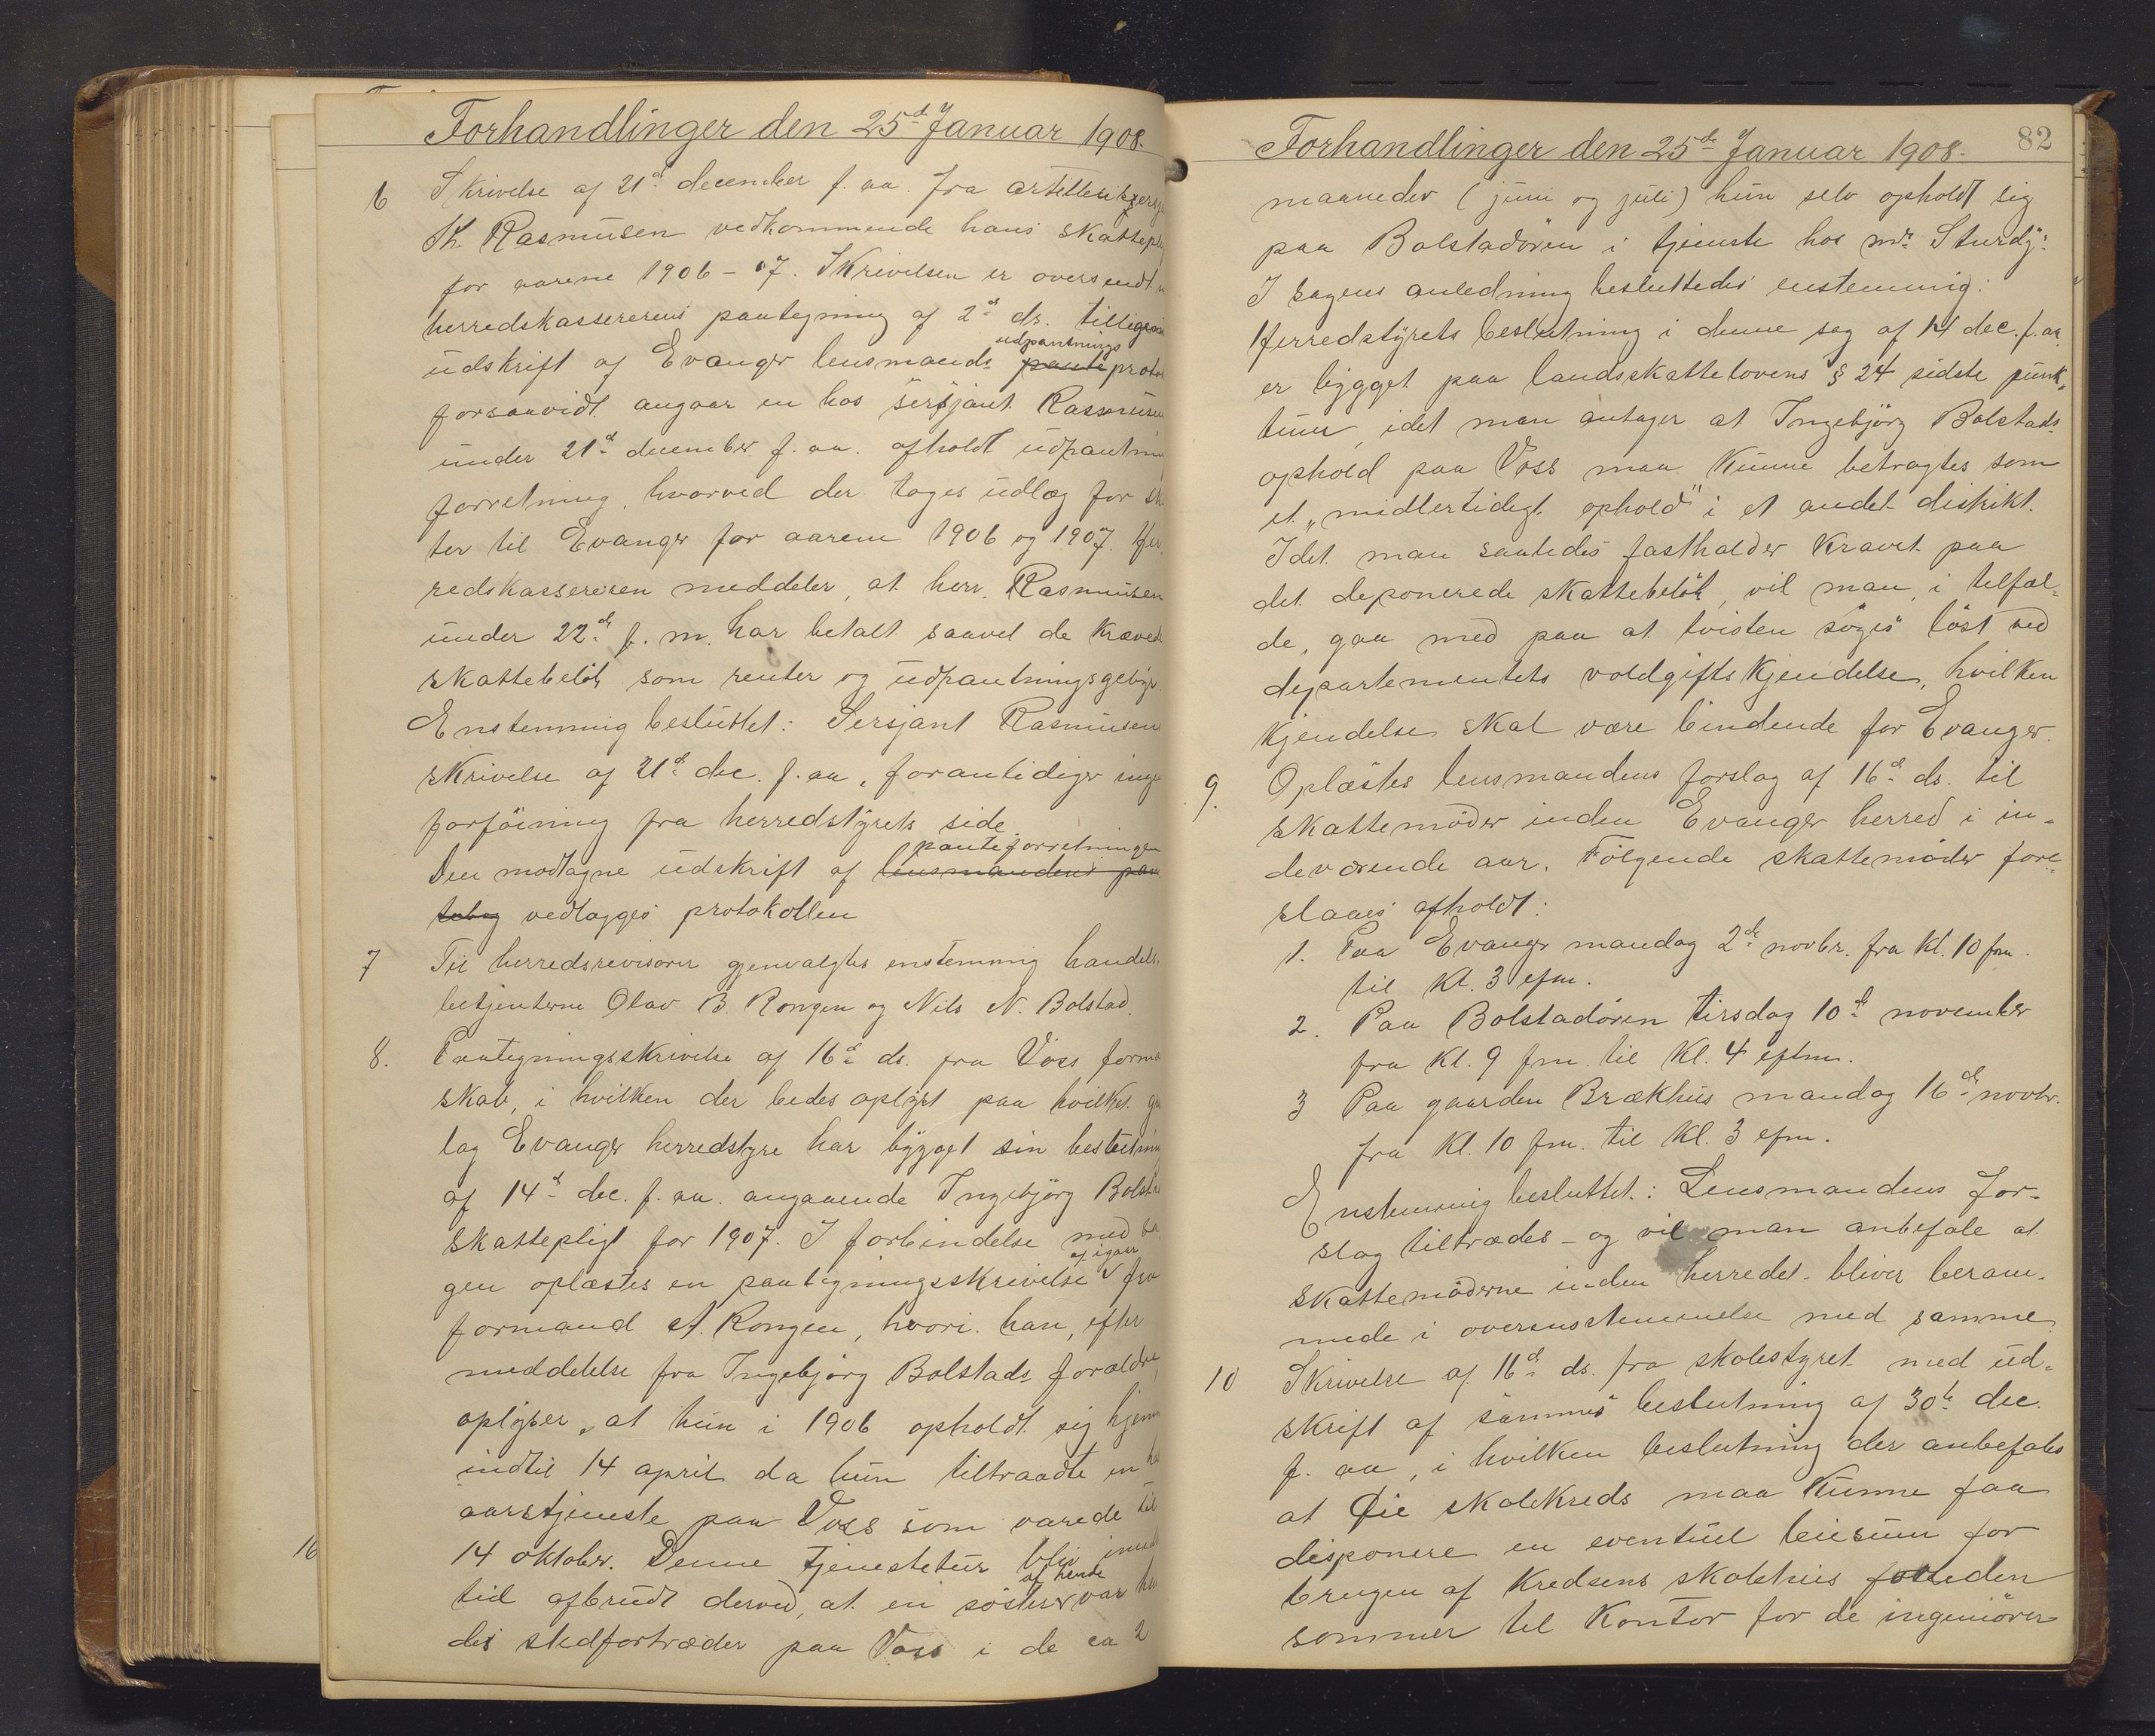 Forhandlinger den 25de Januar 1908.
6 Skrivelse af 21de december f. aa. fra artilleri
Th. Rasmusen vedkommende hans skattepl
for aarene 1906 - 07. Skrivelsen er oversendt
herredskassererens paategning af 2de ds.
udpantnings
udskrift af Evanger lensmands pante proto
forsaavidt angaar en hos sersjant Rasmusen
under 21de december f. aa. afholdt udpantni
forretning, hvorved der toges udlæg for sk
ter til Evanger for aarene 1906 og 1907. Her
redskassereren meddeler, at herr. Rasmusen
under 22de f. m. har betalt saavel de kræved
skattebeløb som renter og udpantningsgebyr.
Enstemmig besluttet: Sersjant Rasmusens
skrivelse af 21de dec. f. aa. foranlediger inge
forføining fra herredstyrets side.
panteforretningen
Den modtagne udskrift af lensmandens pan
tebog vedlægges protokollen
7 Til herredsrevisorer gjenvalgtes enstemmig handels
betjenterne Olav B. Rongen og Nils N. Bolstad.
8. Paategningsskrivelse af 16de ds. fra Voss forma
skab, i hvilken der bedes oplyst paa hvilket
lag Evanger herredstyre har bygget sin beslutning
af 14de dec. f. aa. angaaende Ingebjørg Bolstads
skattepligt for 1907. I forbindelse med sa
af igaar
gen oplæstes en paategningsskrivelse fra
formand A. Rongen, hvori han, efter
meddelelse fra Ingebjørg Bolstads forældre,
oplyser, at hun i 1906 opholdt sig hjemme
indtil 14 april da hun tiltraadte en hal
aarstjeneste paa Voss som varede til
14 oktober. Denne tjenestetur blev imid
af hende
tid afbrudt derved, at en søster var hen
des stedfortræder paa Voss i de ca 2
16
Forhandlinger den 25de Januar 1908. 82
maaneder (juni og juli) hun selv opholdt sig
paa Bolstadøren i tjeneste hos mr. Sturdy.
I sagens anledning besluttedes enstemmig:
Herredstyrets beslutning i denne sag af 14 dec. f. aa.
er bygget paa landsskattelovens § 24 sidste punk,
tum, idet man antager at Ingebjørg Bolstads
ophold paa Voss maa kunne betragtes som
et „midlertidigt ophold" i et andet distrikt.
Idet man saaledes fastholder kravet paa
det deponerede skattebeløb, vil man, i tilfæl-
de, gaa med paa at tvisten søges løst ved
departementets voldgiftskjendelse, hvilken
kjendelse skal være bindende for Evanger.
9. Oplæstes lensmandens forslag af 16de ds. til
skattemøder inden Evanger herred i in-
deværende aar. Følgende skattemøder fore-
slaaes afholdt:
1. Paa Evanger mandag 2de novbr. fra kl. 10 fm.
til kl. 3 efm.
2. Paa Bolstadøren tirsdag 10de november
fra kl. 9 fm. til kl. 4 eftm.
3 Paa gaarden Brækhus mandag 16de novbr.
fra kl. 10 fm. til kl. 3 efm.
Enstemmig besluttet: Lensmandens for-
slag tiltrædes - og vil man anbefale at
skattemøderne inden herredet bliver beram-
mede i overensstemmelse med samme.
10 Skrivelse af 11de ds. fra skolestyret med ud-
skrift af sammes beslutning af 30te dec.
f. aa, i hvilken beslutning der anbefales
at Øie skolekreds maa kunne faa
disponere en eventuel leiesum for
brugen af kredsens skolehus
sommer til kontor for de ingeniører